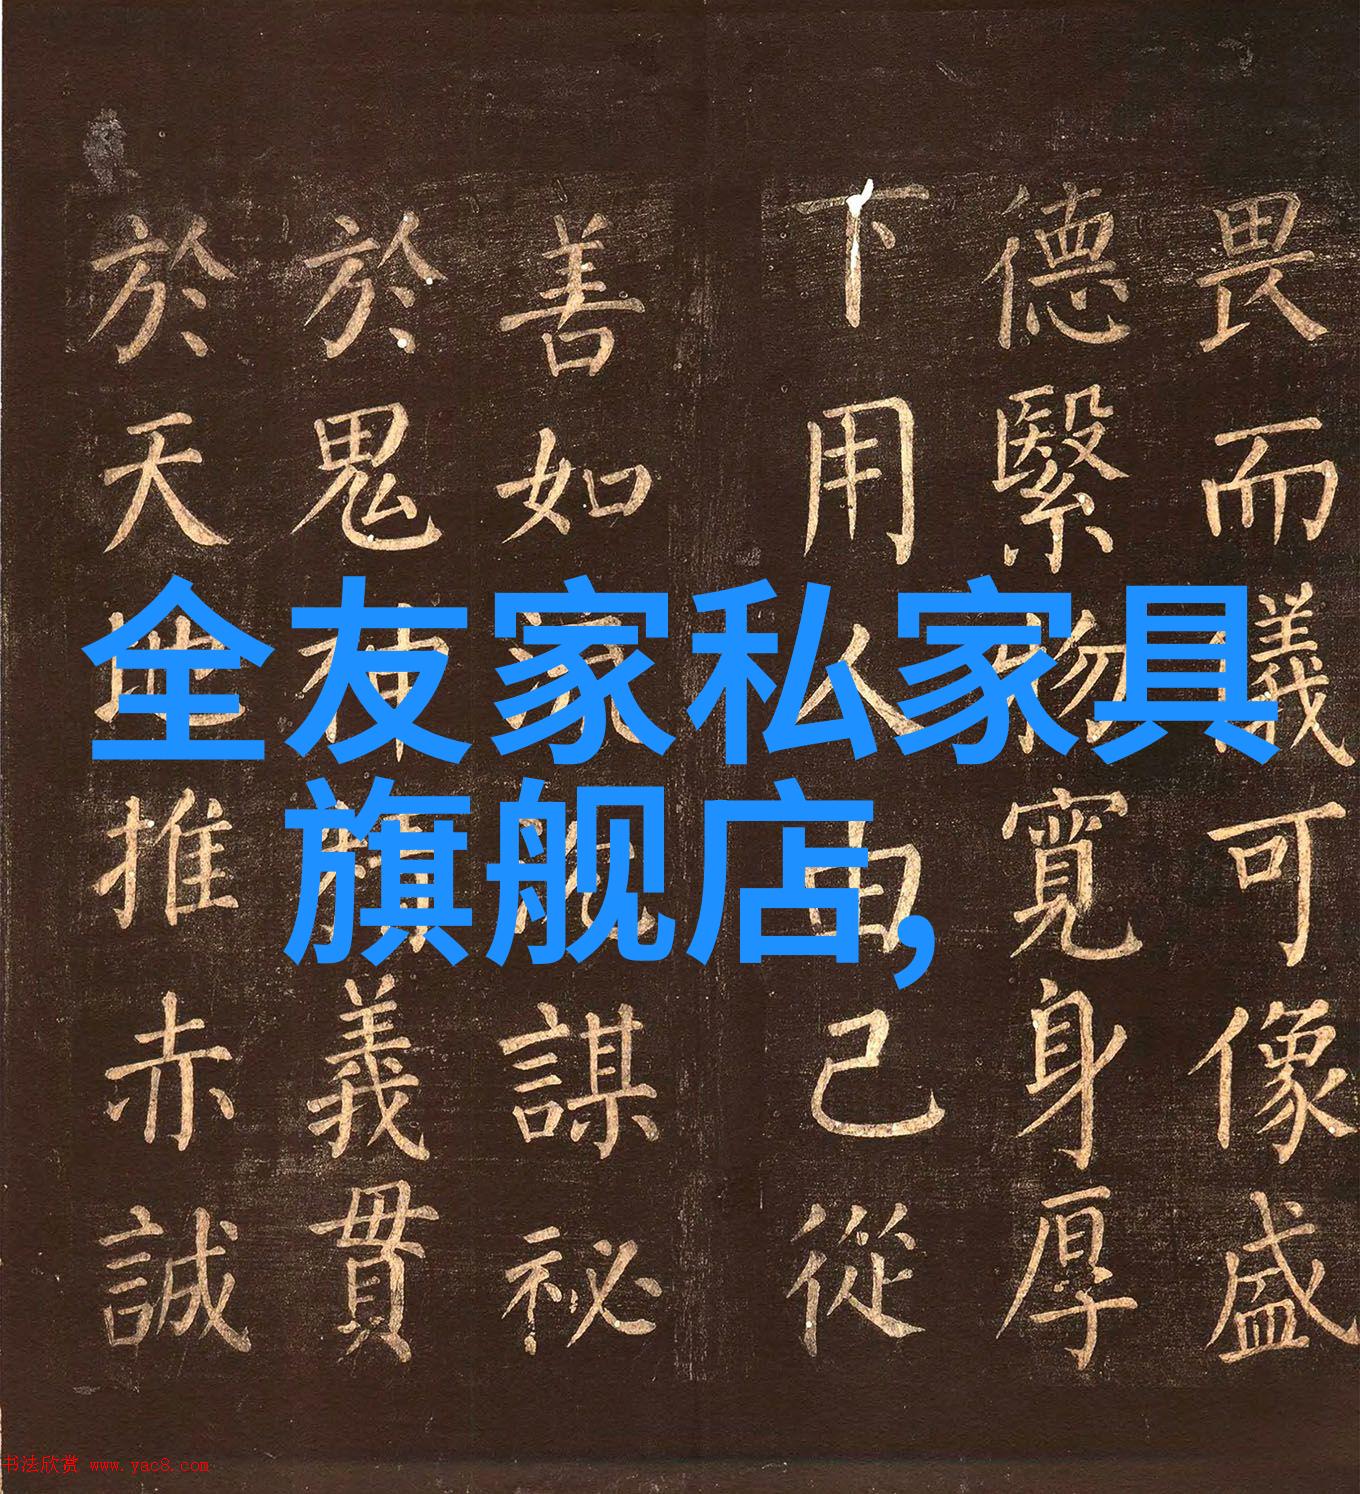 全友家私家具
旗舰店,
畏而儀可像盛
德繄物寬身厚
下用人由己從
善如謀祕
於鬼神義貫
於天地推赤誠
书法欣赏 www.yac8.com